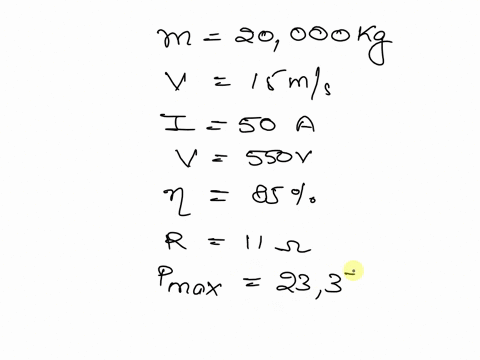 m = 20,000 Kg
V = 15 m/s
I = 50 A
V = 550 V
η = 85 %.
R = 11 Ω
Pmax = 23,3